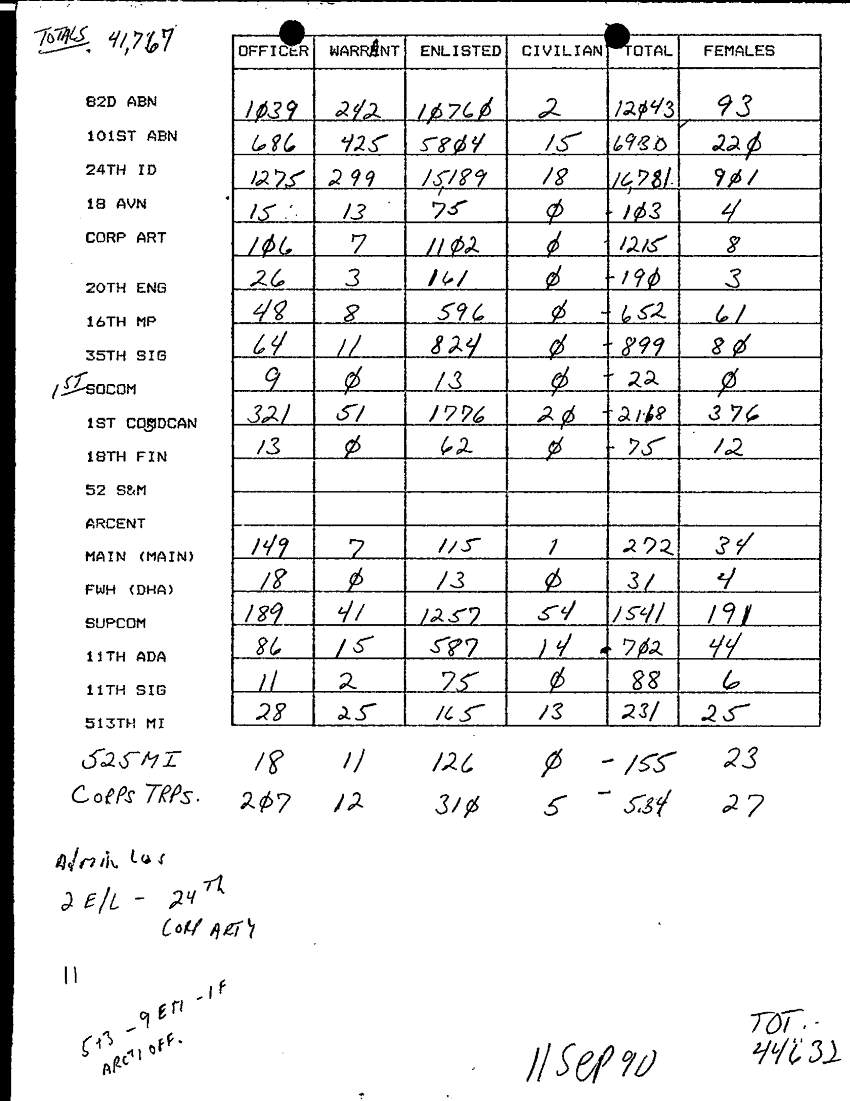 TOTALS. 41,767
OFFICER WARRANT ENLISTED CIVILIAN TOTAL FEMALES
82D ABN 1039 242 10760 2 12043 93
101ST ABN 686 425 5804 15 6930 220
24TH ID 1275 299 15,189 18 16,781 901
18 AVN 15 13 75 0 -103 4
CORP ART 106 7 1102 0 -1215 8
20TH ENG 26 3 161 0 -190 3
16TH MP 48 8 596 0 -652 61
35TH SIG 64 11 824 0 -899 80
1ST SOCOM 9 0 13 0 -22 0
1ST COSCOM 321 51 1776 20 -2168 376
18TH FIN 13 0 62 0 -75 12
52 S&M
ARCENT
MAIN (MAIN) 149 7 115 1 272 34
FWH (DHA) 18 0 13 0 31 4
SUPCOM 189 41 1257 54 1541 191
11TH ADA 86 15 587 14 -702 44
11TH SIG 11 2 75 0 88 6
513TH MI 28 25 165 13 231 25
525 MI 18 11 126 0 -155 23
CORPS TRPS. 207 12 310 5 -534 27
Admin Los
2 E/L - 24TH
CORP ARTY
11
513 - 9 EM - 1F
OFF.
11 Sep 90
TOT.
44632